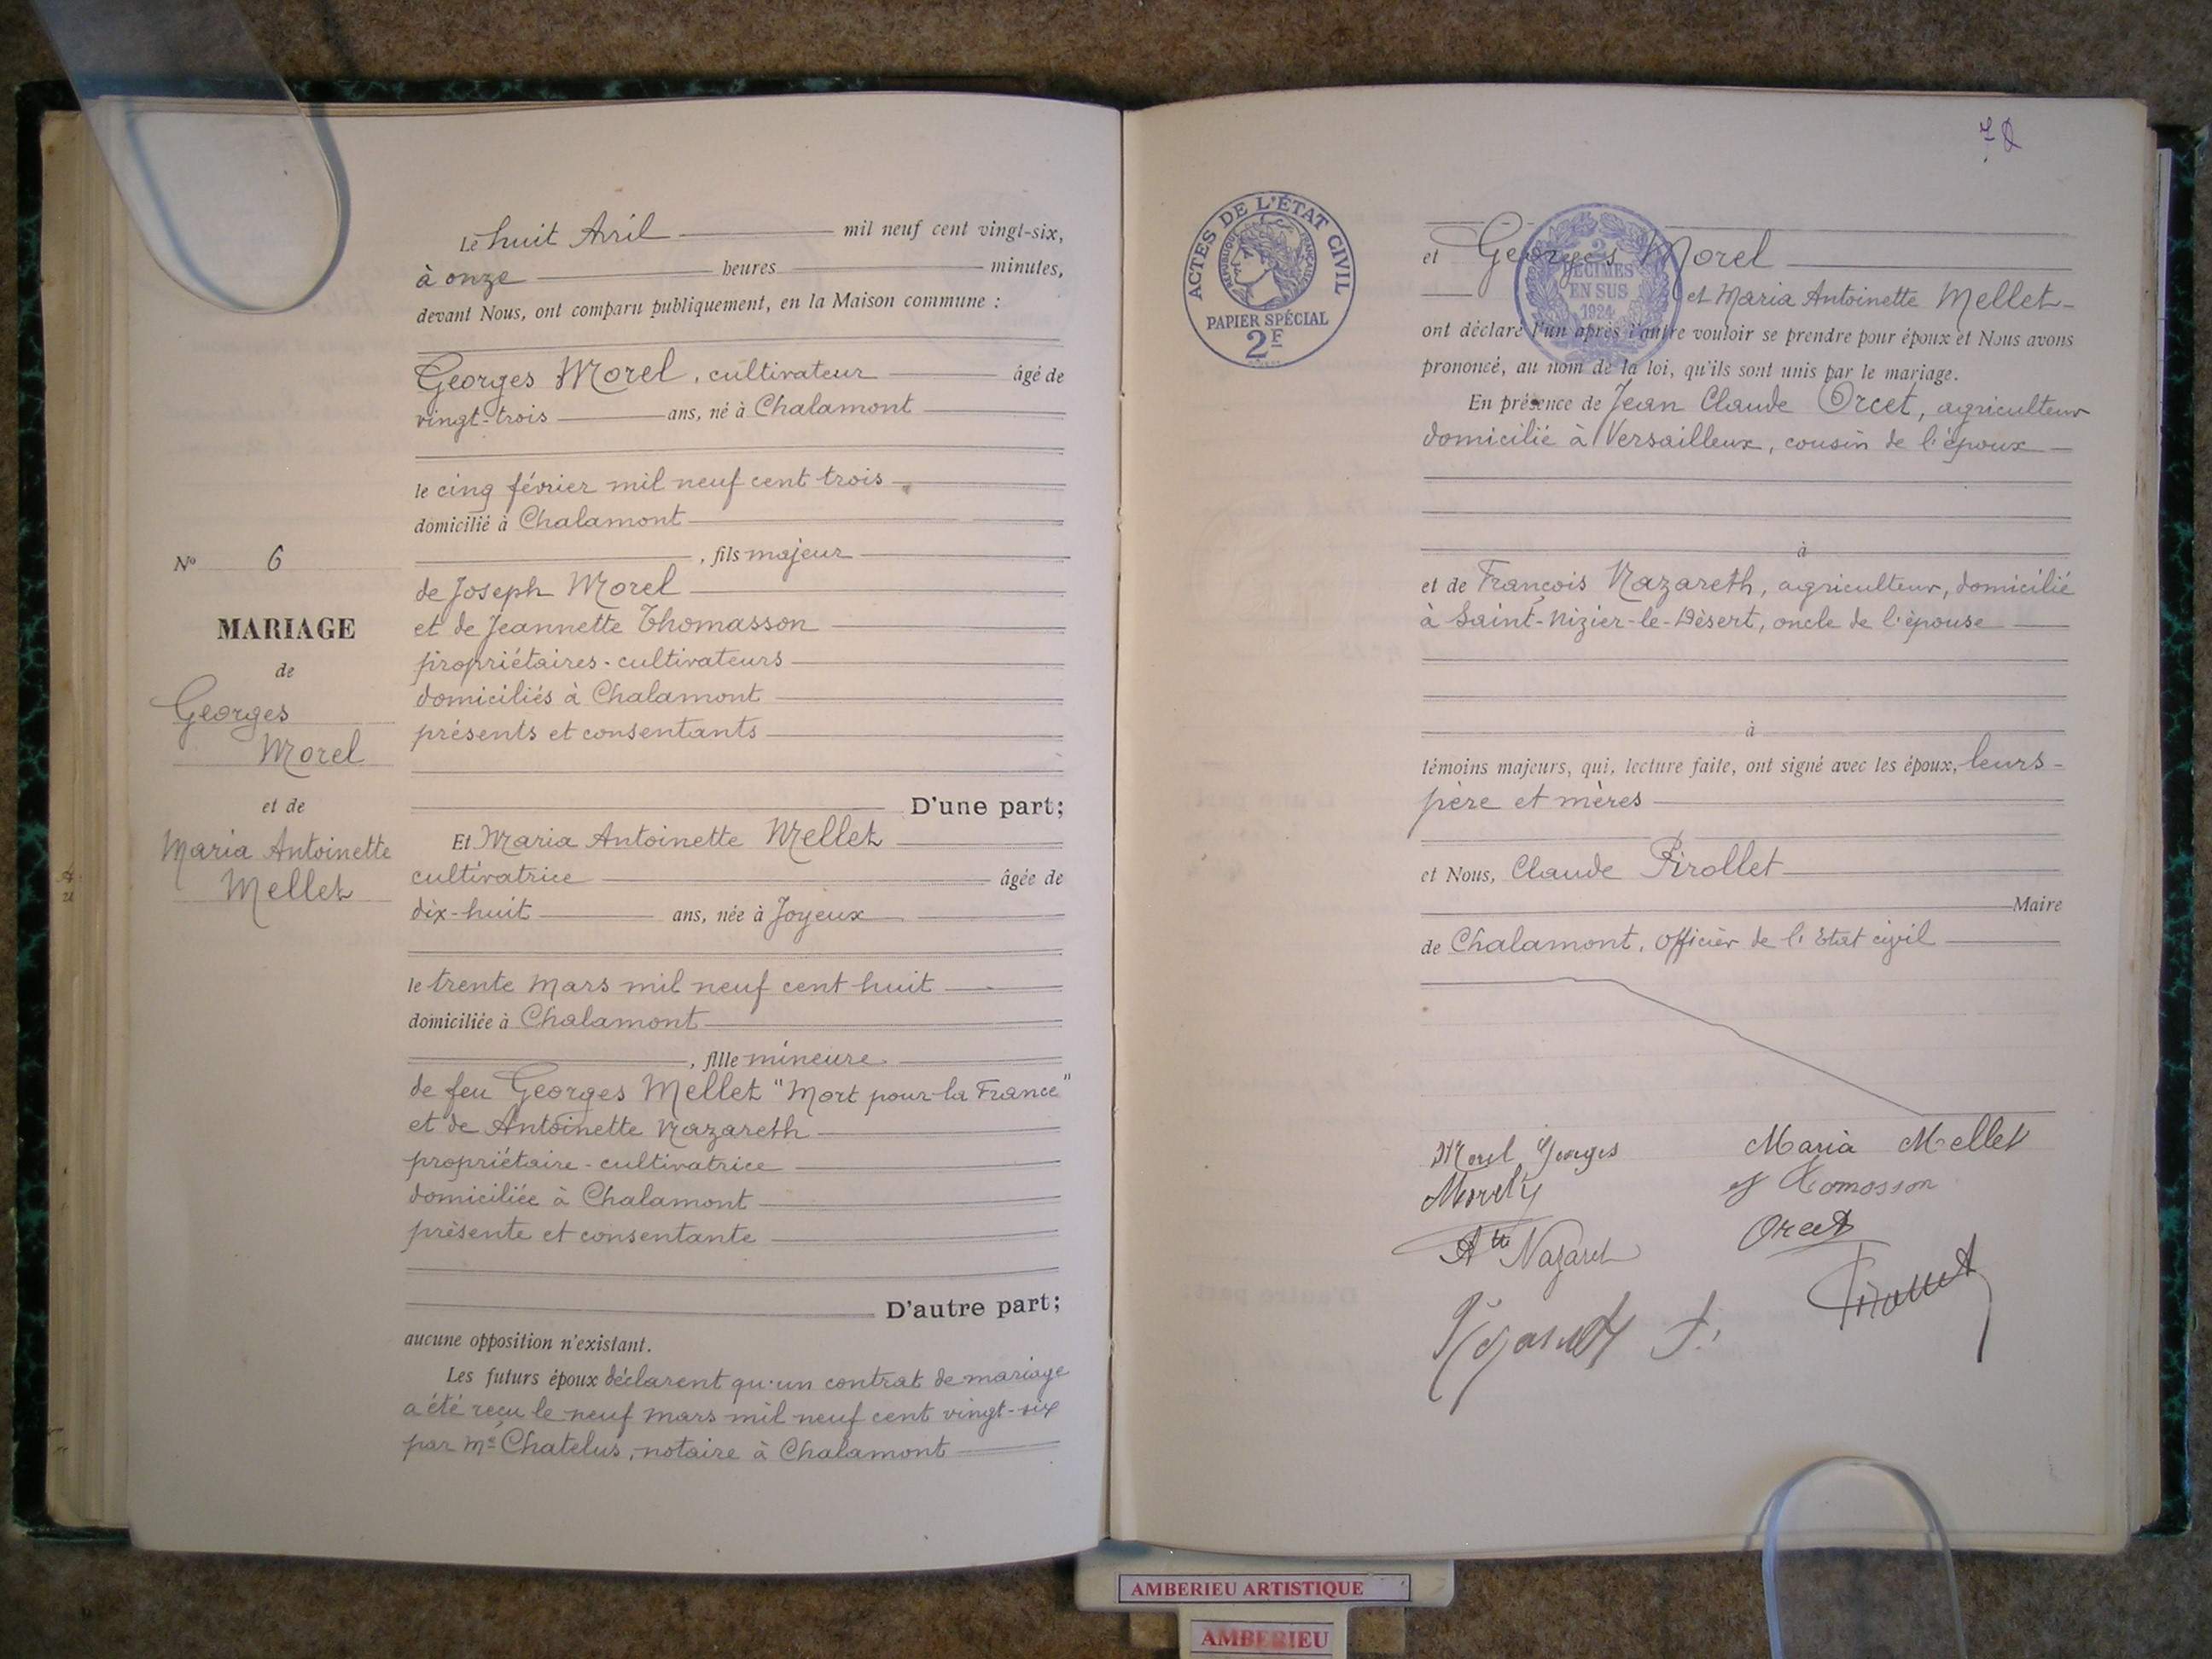 Le huit Avril mil neuf cent vingt-six,
à onze heures minutes,
devant Nous, ont comparu publiquement, en la Maison commune :
Georges Morel, cultivateur âgé de
vingt-trois ans, né à Chalamont
le cinq février mil neuf cent trois
domicilié à Chalamont
, fils majeur
de Joseph Morel
et de Jeannette Thomasson
propriétaires-cultivateurs
domiciliés à Chalamont
présents et consentants
D'une part;
Et Maria Antoinette Mellet
cultivatrice âgée de
dix-huit ans, née à Joyeux
le trente Mars mil neuf cent huit
domiciliée à Chalamont
, fille mineure
de feu Georges Mellet "Mort pour la France"
et de Antoinette Nazareth
propriétaire-cultivatrice
domiciliée à Chalamont
présente et consentante
D'autre part;
aucune opposition n'existant.
Les futurs époux déclarent qu'un contrat de mariage
a été reçu le neuf mars mil neuf cent vingt-six
par Me Chatelus, notaire à Chalamont
No 6
MARIAGE
de
Georges
Morel
et de
Maria Antoinette
Mellet
ACTES DE L'ÉTAT CIVIL
RÉPUBLIQUE FRANÇAISE
PAPIER SPÉCIAL
2F
2
DÉCIMES
EN SUS
1924
et Georges Morel
et Maria Antoinette Mellet
ont déclaré l'un après l'autre vouloir se prendre pour époux et Nous avons
prononcé, au nom de la loi, qu'ils sont unis par le mariage.
En présence de Jean Claude Orcet, agriculteur
domicilié à Versailleux, cousin de l'époux
à
et de François Nazareth, agriculteur, domicilié
à Saint-Nizier-le-Désert, oncle de l'épouse
à
témoins majeurs, qui, lecture faite, ont signé avec les époux, leurs
père et mères
et Nous, Claude Pirollet
Maire
de Chalamont, Officier de l'Etat civil
Morel Georges Maria Mellet
Morel
Orcet
Ate Nazaret
AMBERIEU ARTISTIQUE
AMBERIEU